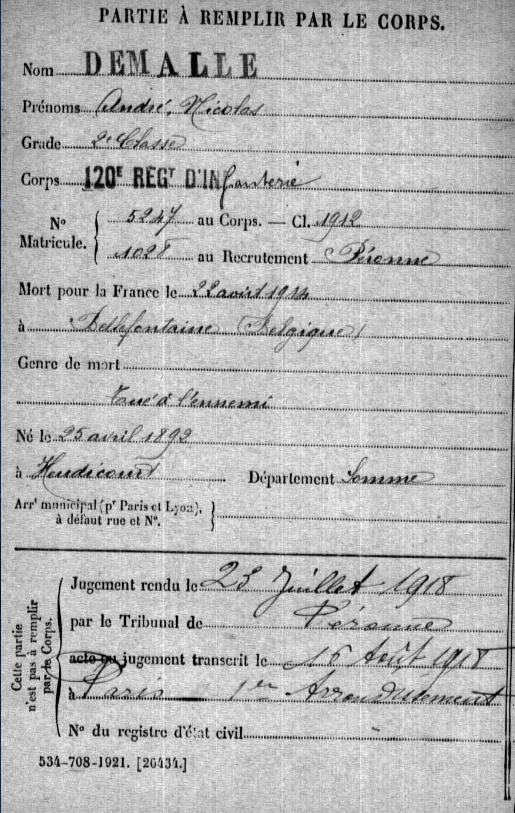 PARTIE À REMPLIR PAR LE CORPS.
Nom DEMALLE
Prénoms André, Nicolas
Grade 2e Classe
Corps 120E REGT D'INfanterie
N° Matricule. 5247 au Corps. — Cl. 1912
1028 au Recrutement Péronne
Mort pour la France le 22 août 1914
à Bellefontaine (Belgique)
Genre de mort
Tué à l'ennemi
Né le 25 avril 1892
à Heudicourt Département Somme
Arrt municipal (pr Paris et Lyon), à défaut rue et N°.
Cette partie n'est pas à remplir par le Corps.
Jugement rendu le 23 Juillet 1918
par le Tribunal de Péronne
acte ou jugement transcrit le 16 Août 1918
à Paris 1er Arrondissement
N° du registre d'état civil
534-708-1921. [26434.]